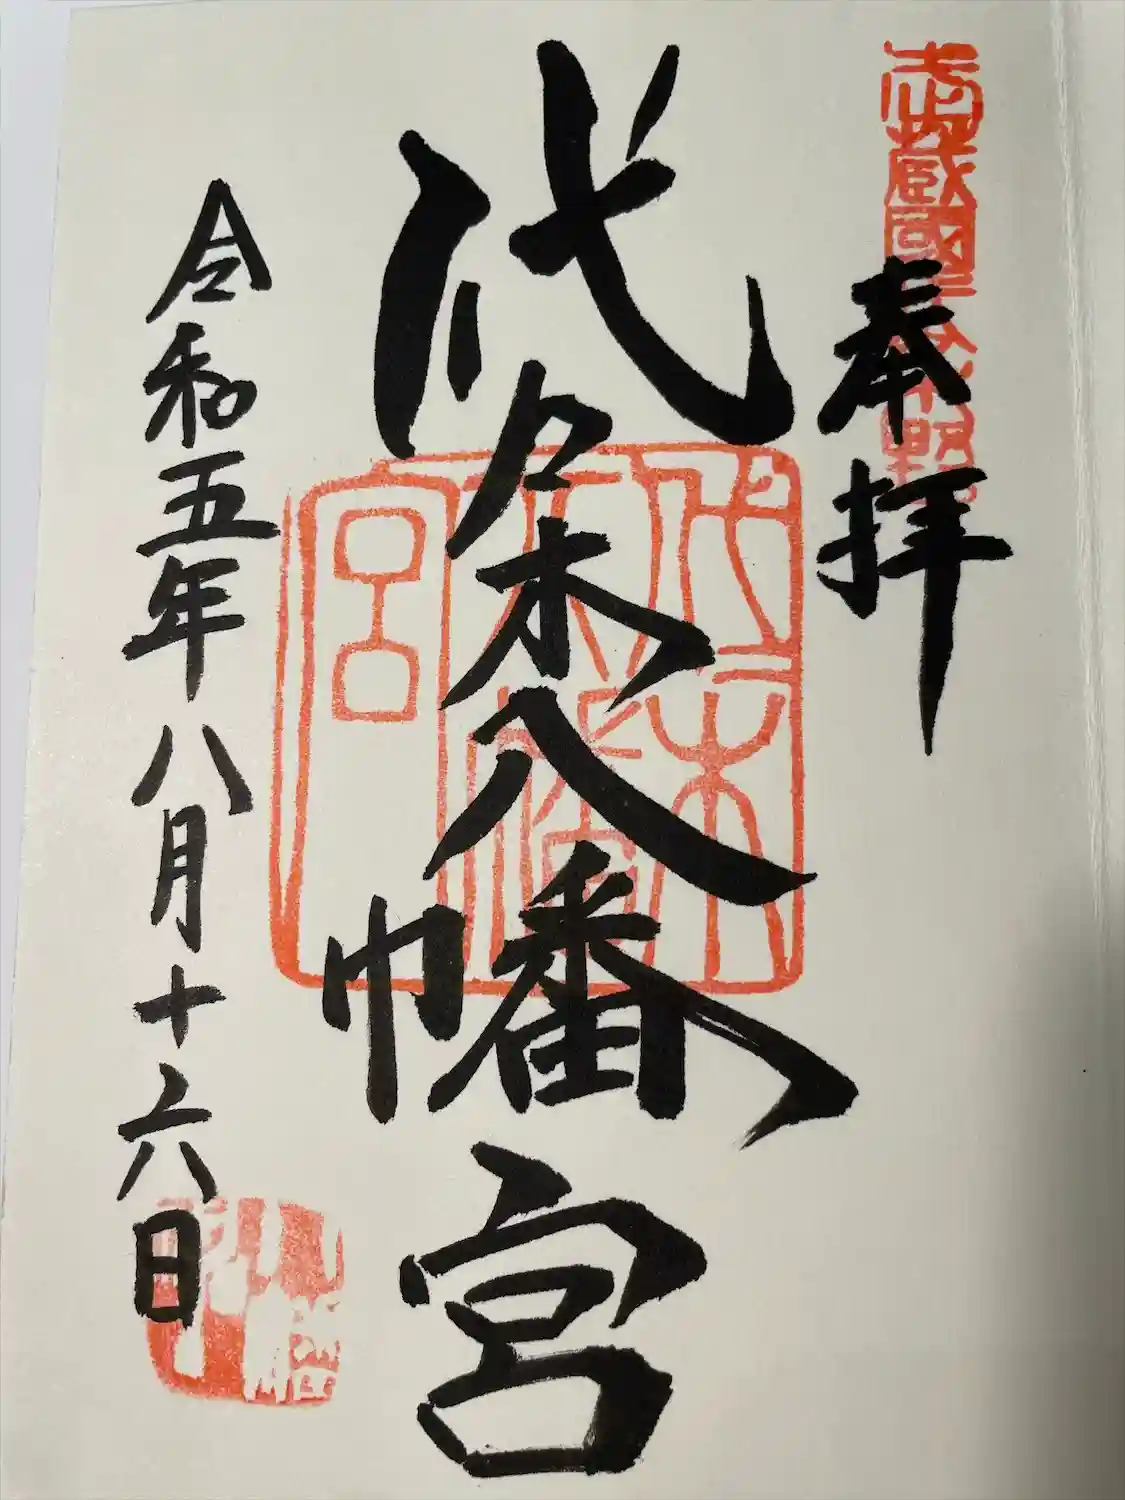 武蔵國代々木野
奉拝
代々木八幡宮
代々木八幡宮
令和五年八月十六日